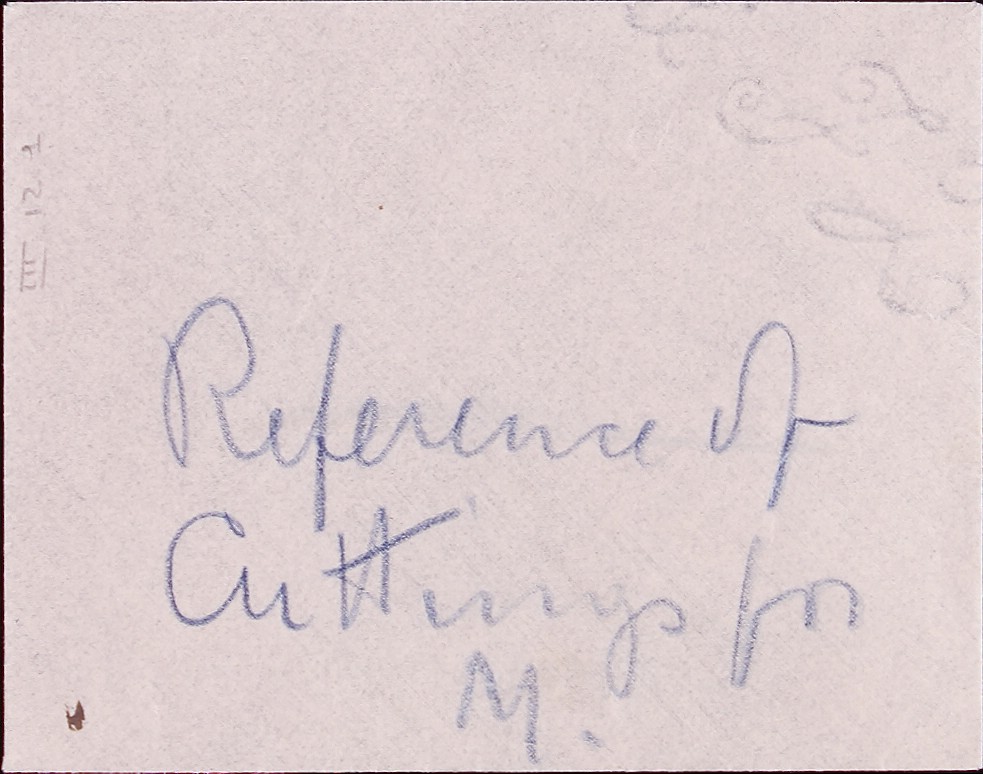 III 12 1
Reference of
Cuttings for
M.